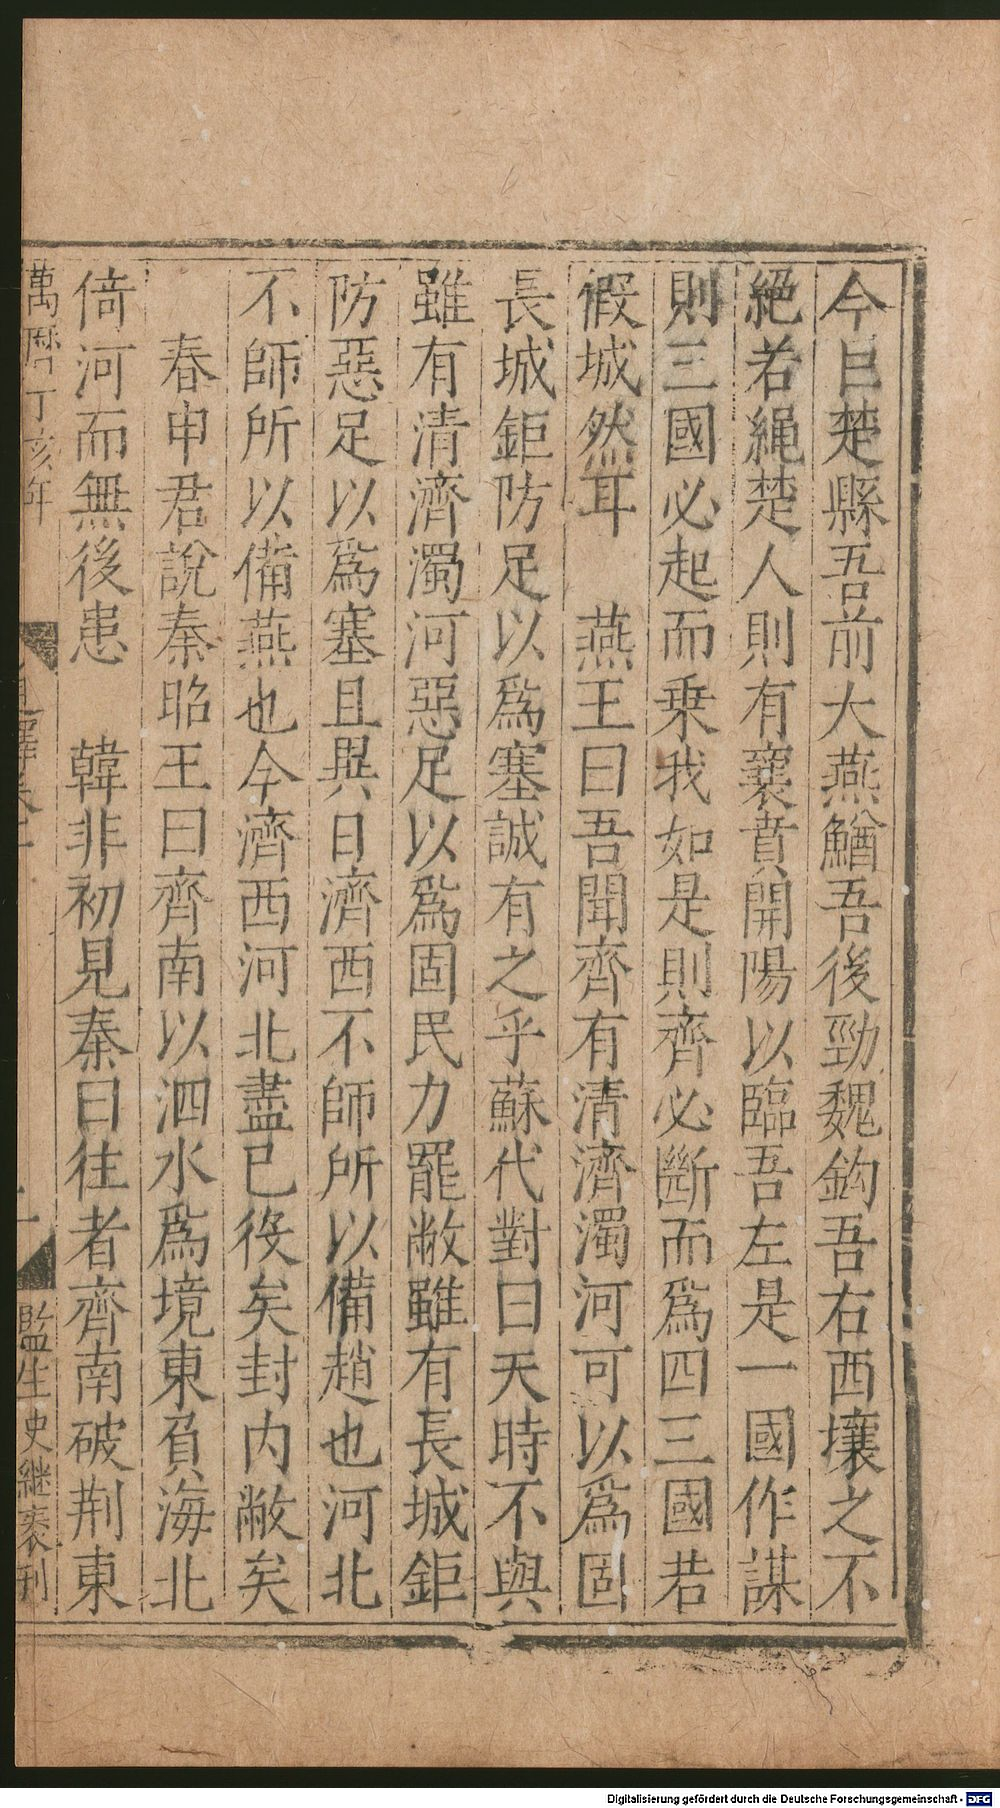 今巨楚縣吾前大燕鰌吾後勁魏鈎吾右西壤之不
絕若繩楚人則有襄賁開陽以臨吾左是一國作謀
則三國必起而乗我如是則齊必斷而爲四三國若
假城然耳　燕王曰吾聞齊有清濟濁河可以爲固
長城鉅防足以爲塞誠有之乎蘇代對曰天時不與
雖有清濟濁河惡足以爲固民力罷敝雖有長城鉅
防惡足以爲塞且異日濟西不師所以備趙也河北
不師所以備燕也今濟西河北盡已役矣封内敝矣
春申君說秦昭王曰齊南以泗水爲境東負海北
倚河而無後患　韓非初見秦曰往者齊南破荆東
萬曆丁亥年
監生史継裘刊
Digitalisierung gefördert durch die Deutsche Forschungsgemeinschaft - DFG